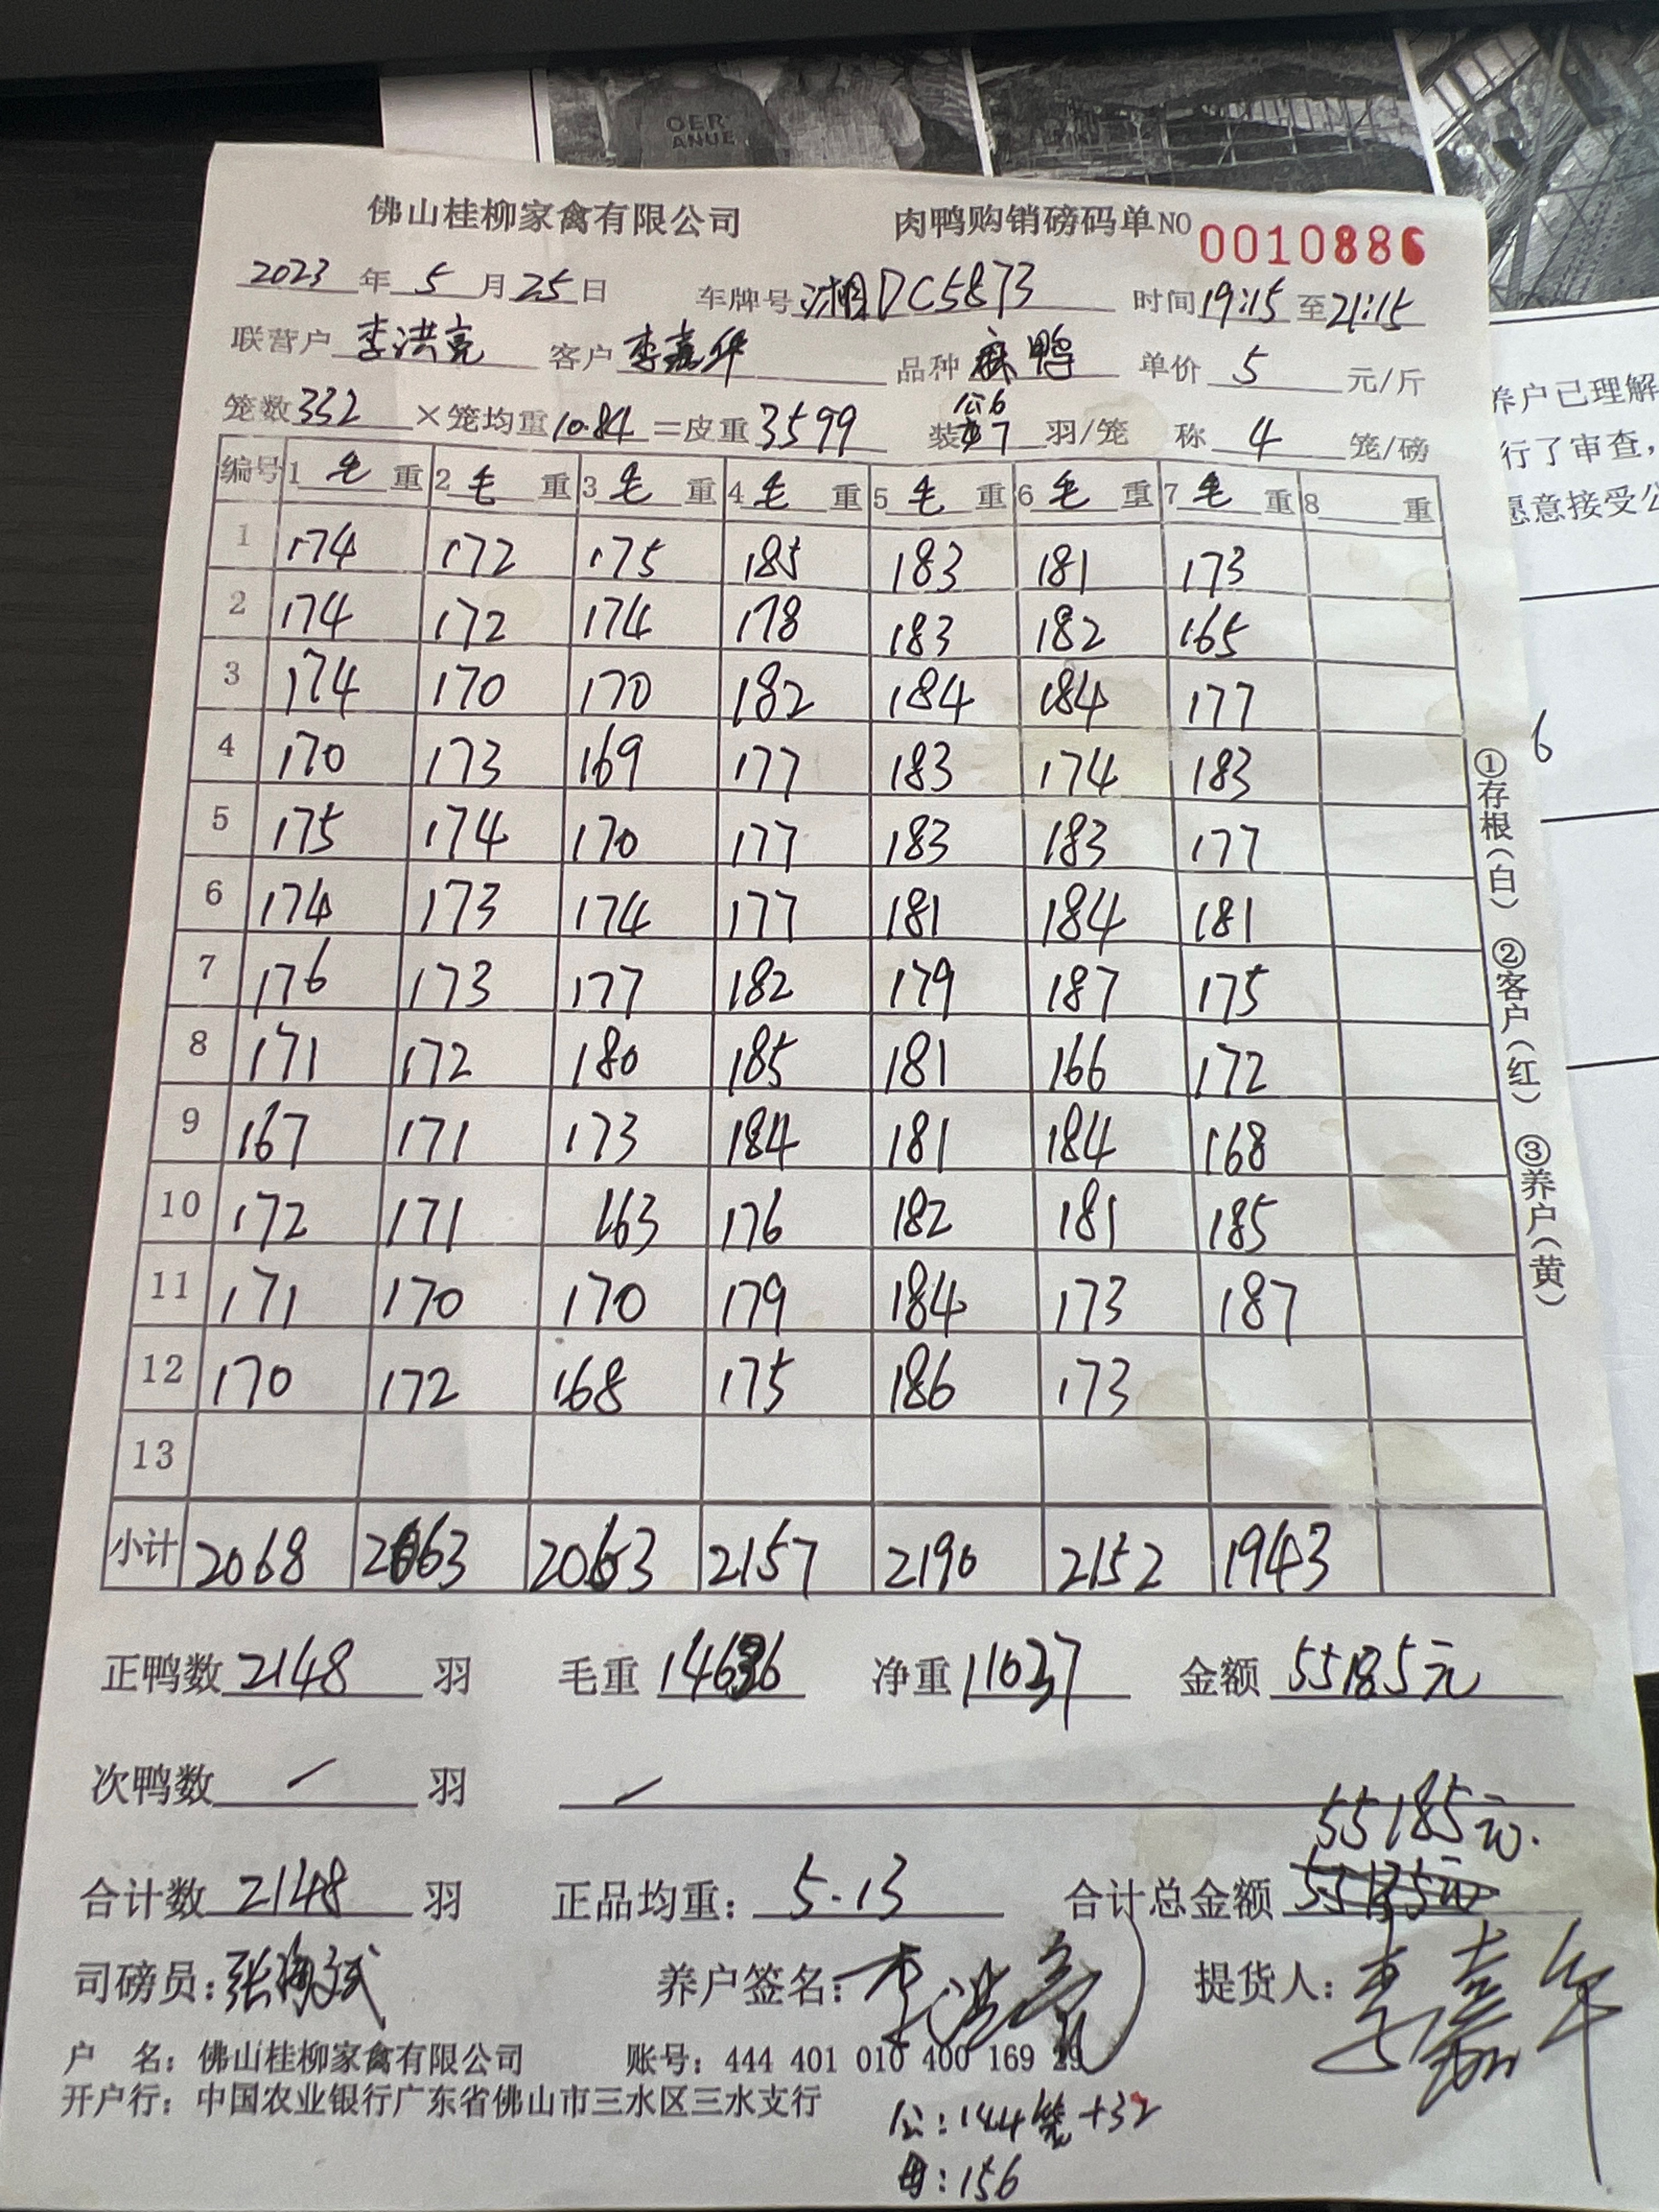 OER
ANUE
佛山桂柳家禽有限公司 肉鸭购销磅码单NO 0010886
2023年5月25日 车牌号湘DC5873 时间19:15至21:15
联营户李洪亮 客户李嘉华 品种麻鸭 单价5元/斤
公6
笼数332×笼均重10.84=皮重3599 装母7羽/笼 称4笼/磅
编号 1毛重 2毛重 3毛重 4毛重 5毛重 6毛重 7毛重 8重
1 174 172 175 185 183 181 173
2 174 172 174 178 183 182 165
3 174 170 170 182 184 184 177
4 170 173 169 177 183 174 183
5 175 174 170 177 183 183 177
6 174 173 174 177 181 184 181
7 176 173 177 182 179 187 175
8 171 172 180 185 181 166 172
9 167 171 173 184 181 184 168
10 172 171 163 176 182 181 185
11 171 170 170 179 184 173 187
12 170 172 168 175 186 173
13
小计 2068 2063 2063 2157 2190 2152 1943
正鸭数2148羽 毛重14636 净重11037 金额55185元
次鸭数/羽 /
55185元.
合计数2148羽 正品均重:5.13 合计总金额
司磅员:张海斌 养户签名:李洪亮 提货人:李嘉华
户 名:佛山桂柳家禽有限公司 账号:444 401 010 400 169 29
开户行:中国农业银行广东省佛山市三水区三水支行
公:144笼+32
母:156
①存根(白) ②客户(红) ③养户(黄)
养户已理解
行了审查,
愿意接受公
6